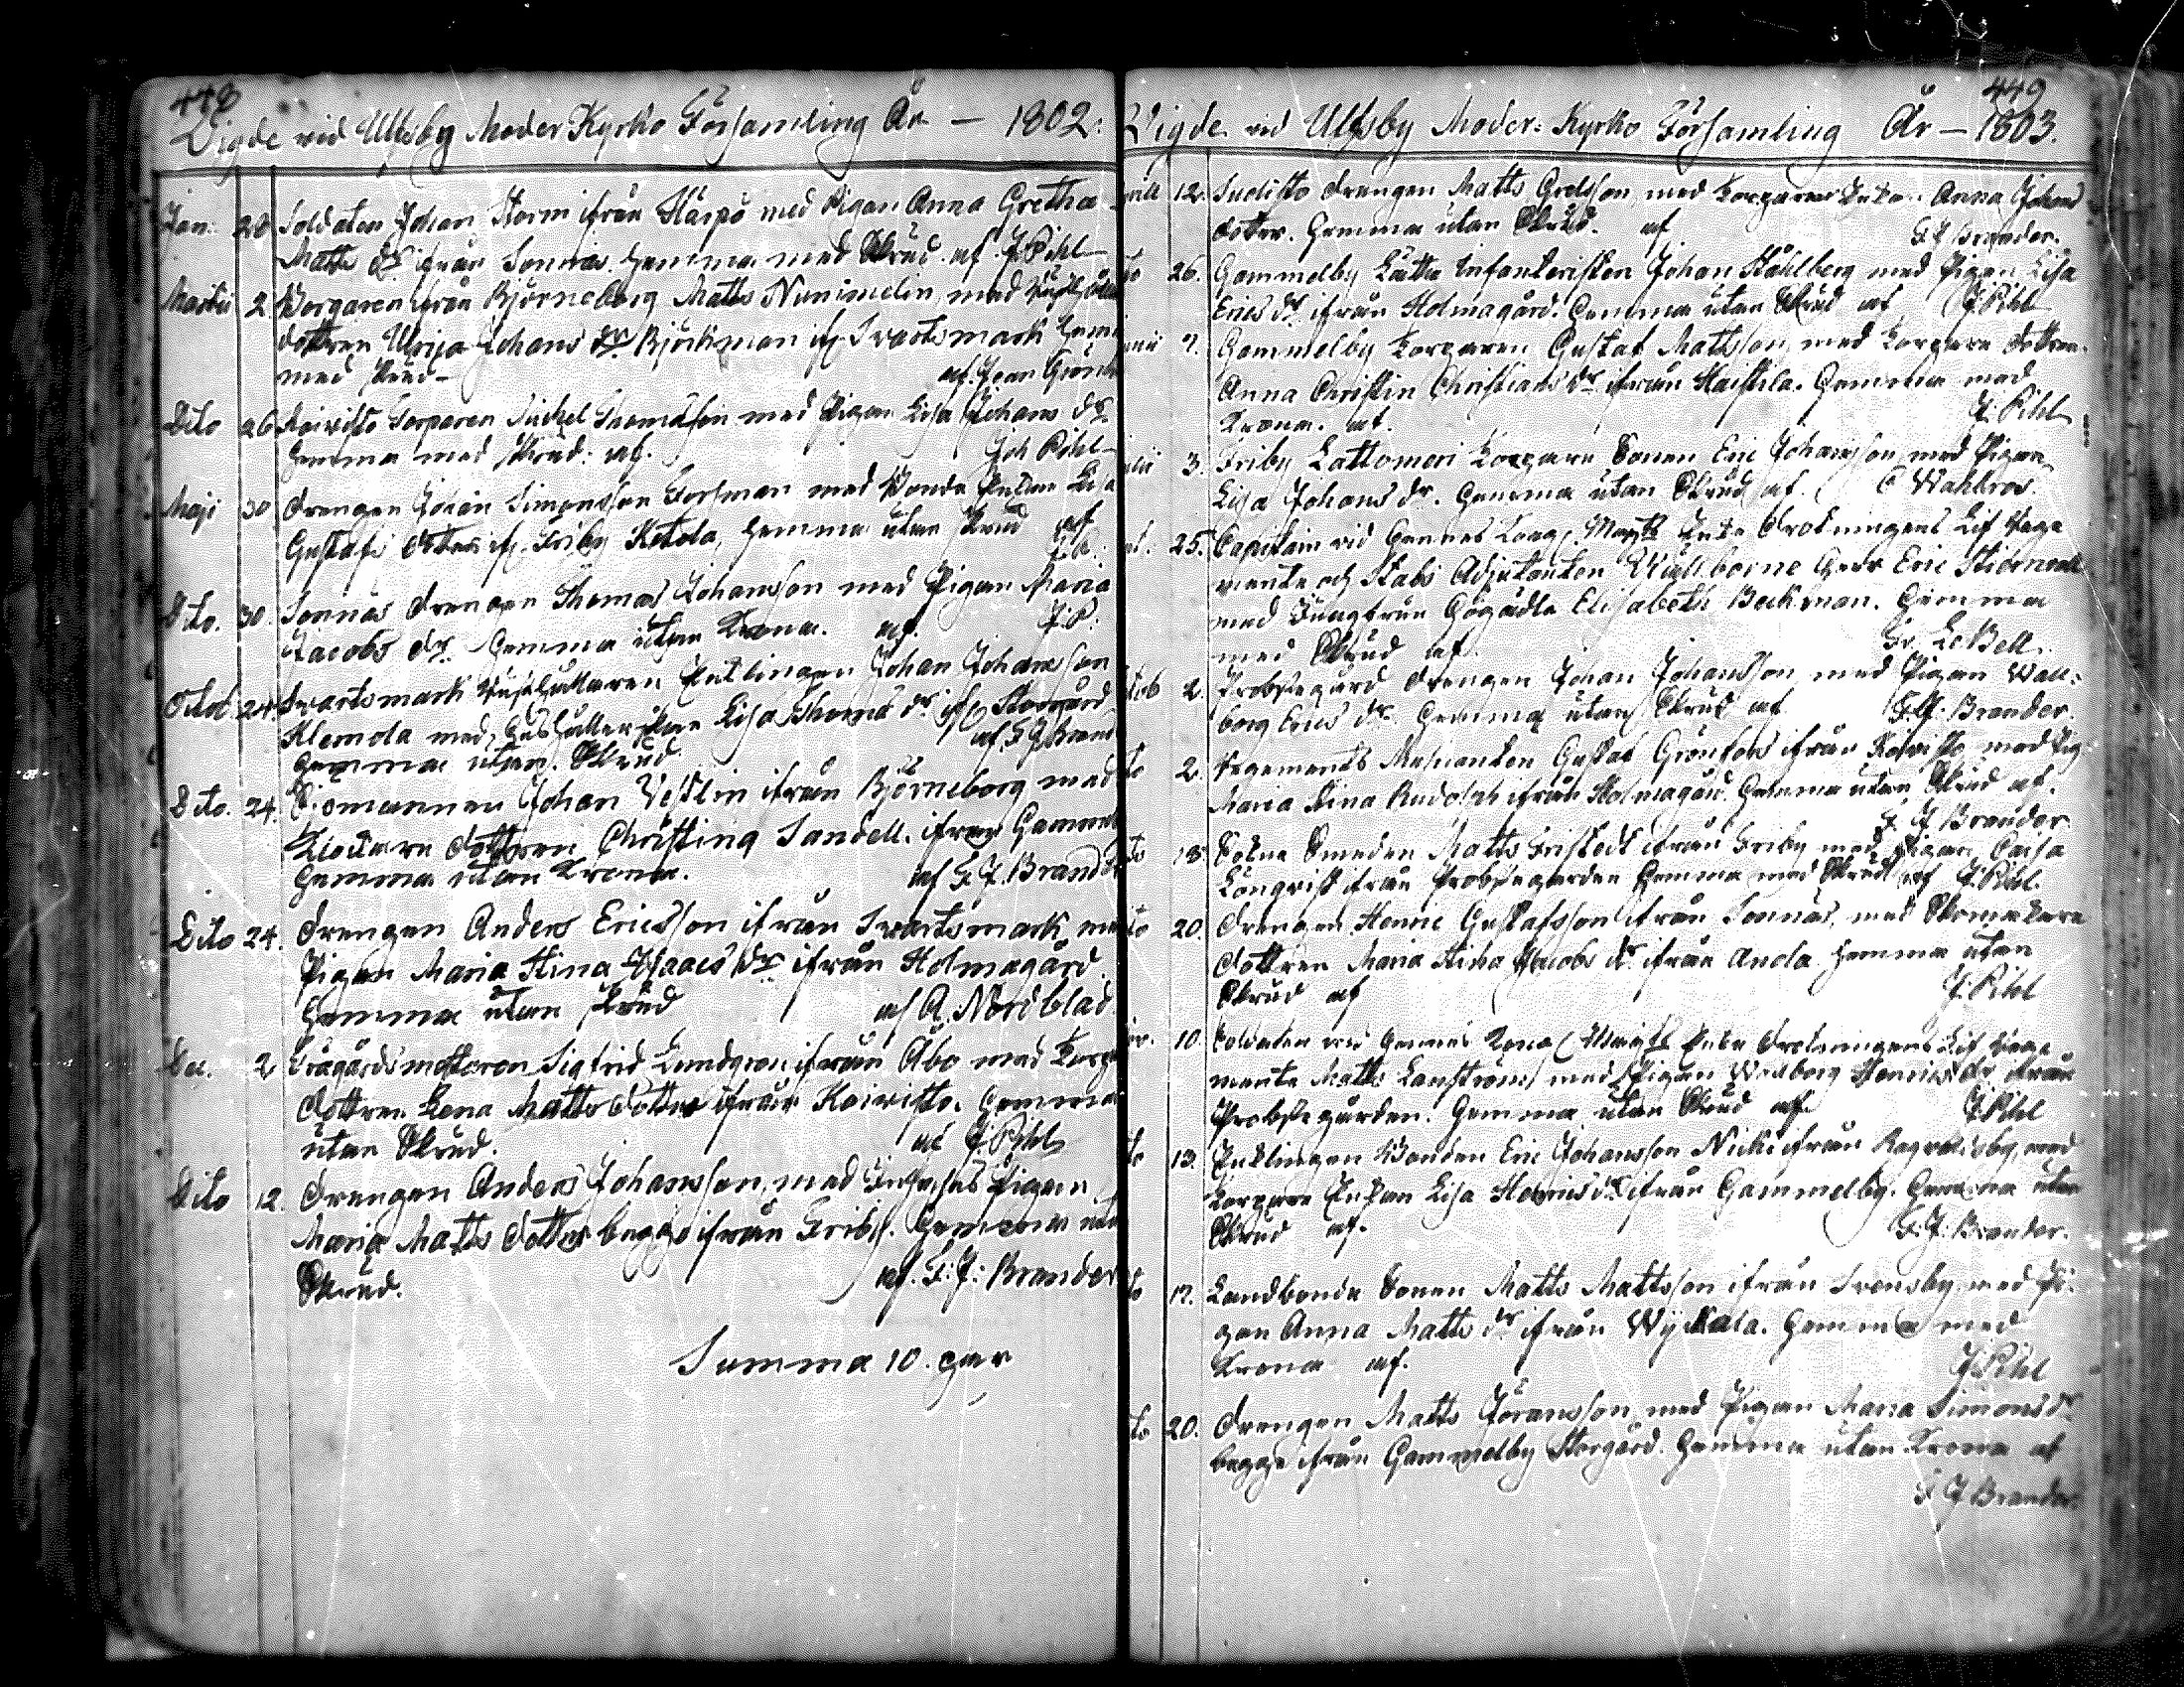 448
Vigde vid Ulfsby Moder Kyrko Församling År – 1802.
Jan: 28 Soldaten Johan Storm ifrån Härpö med Pigan Anna Gretha
Matts dr ifrån Sonnäs. Hemma med Skrud. af J. Pihl
Martii 2 Borgaren ifrån Björneborg Matts Nummelin, med
dottren Ulrica Johans dr Björkman if. Svartsmark Hemma
med skrud – af Joan Grönlu
Dito 26 Koivisto Torparen Michel Thomasson med Pigan Lisa Johans dr
Hemma med skrud: af. Joh Pihl
Maji 30 Drengen Johan Simonsson Forsman med Bonde Enkan Lisa
Gustafs dotter if. Friby Ketola, Hemma utan skrud af
J.P.
Dito. 30. Sonnäs Drengen Thomas Johansson med Pigan Maria
Jacobs dr. Hemma utan Krona. af. J.P.
Octob: 24. Svartsmark Enklingen Johan Johansson
Klemola med Lisa Thomæ dr if Storgård
Hemma utan Skrud. af F J Brand
Dito. 24. Sjömannen Johan Vestlin ifrån Björneborg med
Klockare dottren Christina Sandell. ifrån Gammel
Hemma utan Krona. af F. J. Brander
Dito 24. Drengen Anders Ericsson ifrån Svartsmark me
Pigan Maria Stina Isaacs dr ifrån Holmagård
Hemma utan skrud af A. Nordblad
Dec. 2 Trägårdsmästaren Sigfrid Lundgren ifrån Åbo med Torpa
dottren Lena Matts dotter ifrån Koivisto. Hemma
utan Skrud. af J. Pihl
Dito 12. Drengen Anders Johansson, med Inhyses Pigan
Maria Matts dotter bägge ifrån Friby. Hemma utan
Skrud. af. F: J: Brander
Summa 10. par
449
Vigde vid Ulfsby Moder-Kyrko Församling År – 1803.
rill 12. Suosisto Drengen Matts Grelsson, med Torpare Enkan Anna Johans
dotter. Hemma utan Skrud. af F J Brander.
to 26. Gammelby Lätta Infanteristen Johan Ståhlberg med Pigan Lisa
Erics dr ifrån Holmagård. Hemma utan Skrud af J. Pihl
unii 7. Gammelby Torparen Gustaf Mattsson, med Torpare dottren
Anna Christin Christians dr ifrån Haistila. Hemma med
Krona. af. J. Pihl
ulii 3. Friby Lattomeri Torpare Sonen Eric Johansson med Pigan
Lisa Johans dr. Hemma utan Skrud af. C Wahlroos.
25. Capitain vid Hennes Kong. Majts Enke Drottningens Lif Rege
mente och Stabs Adjutanten Wälborne Herr Eric Stiernvall
med Jungfrun Högädla Elisabeth Beckman. Hemma
med Skrud af. Fr. LeBell.
tob 2. Probstegård Drengen Johan Johansson med Pigan Wal-
borg Erics dr. Hemma utan Skrud af F. J. Brander.
to 2. Regements Musicanten Gustaf Grönfors ifrån Koivisto med Pig
Maria Stina Rudolph ifrån Holmagård. Hemma utan Skrud af.
F J Brander
to 18. Sokne Smeden Matts Fristedt ifrån Friby med Pigan Caisa
Löngvist ifrån Probstegården Hemma med Skrud af J. Pihl.
to 20. Drengen Henric Gustafsson ifrån Sonnäs, med Skomakare
dottren Maria Stina Jacobs dr. ifrån Anola. Hemma utan
Skrud af J. Pihl
ov. 10. Soldaten vid Hennes Kong. Majts Enke Drottningens Lif Rege
mente Matts Lanström med Pigan Walborg Henrics dr ifrån
Probstegården. Hemma utan Skrud af. J. Pihl
to 13. Enklingen Bonden Eric Johansson Nicki ifrån Ragvaldsby, med
Torpare Enkan Lisa Henrics dr ifrån Gammelby. Hemma utan
Skrud af. F. J. Brander.
to 17. Landbonde Sonen Matts Mattsson ifrån Svensby med Pi-
gan Anna Matts dr ifrån Wyckala. Hemma med
Krona af. J. Pihl
to 20. Drengen Matts Jöransson med Pigan Maria Simons dr
begge ifrån Gammelby Storgård. Hemma utan Krona af
F J Brander.